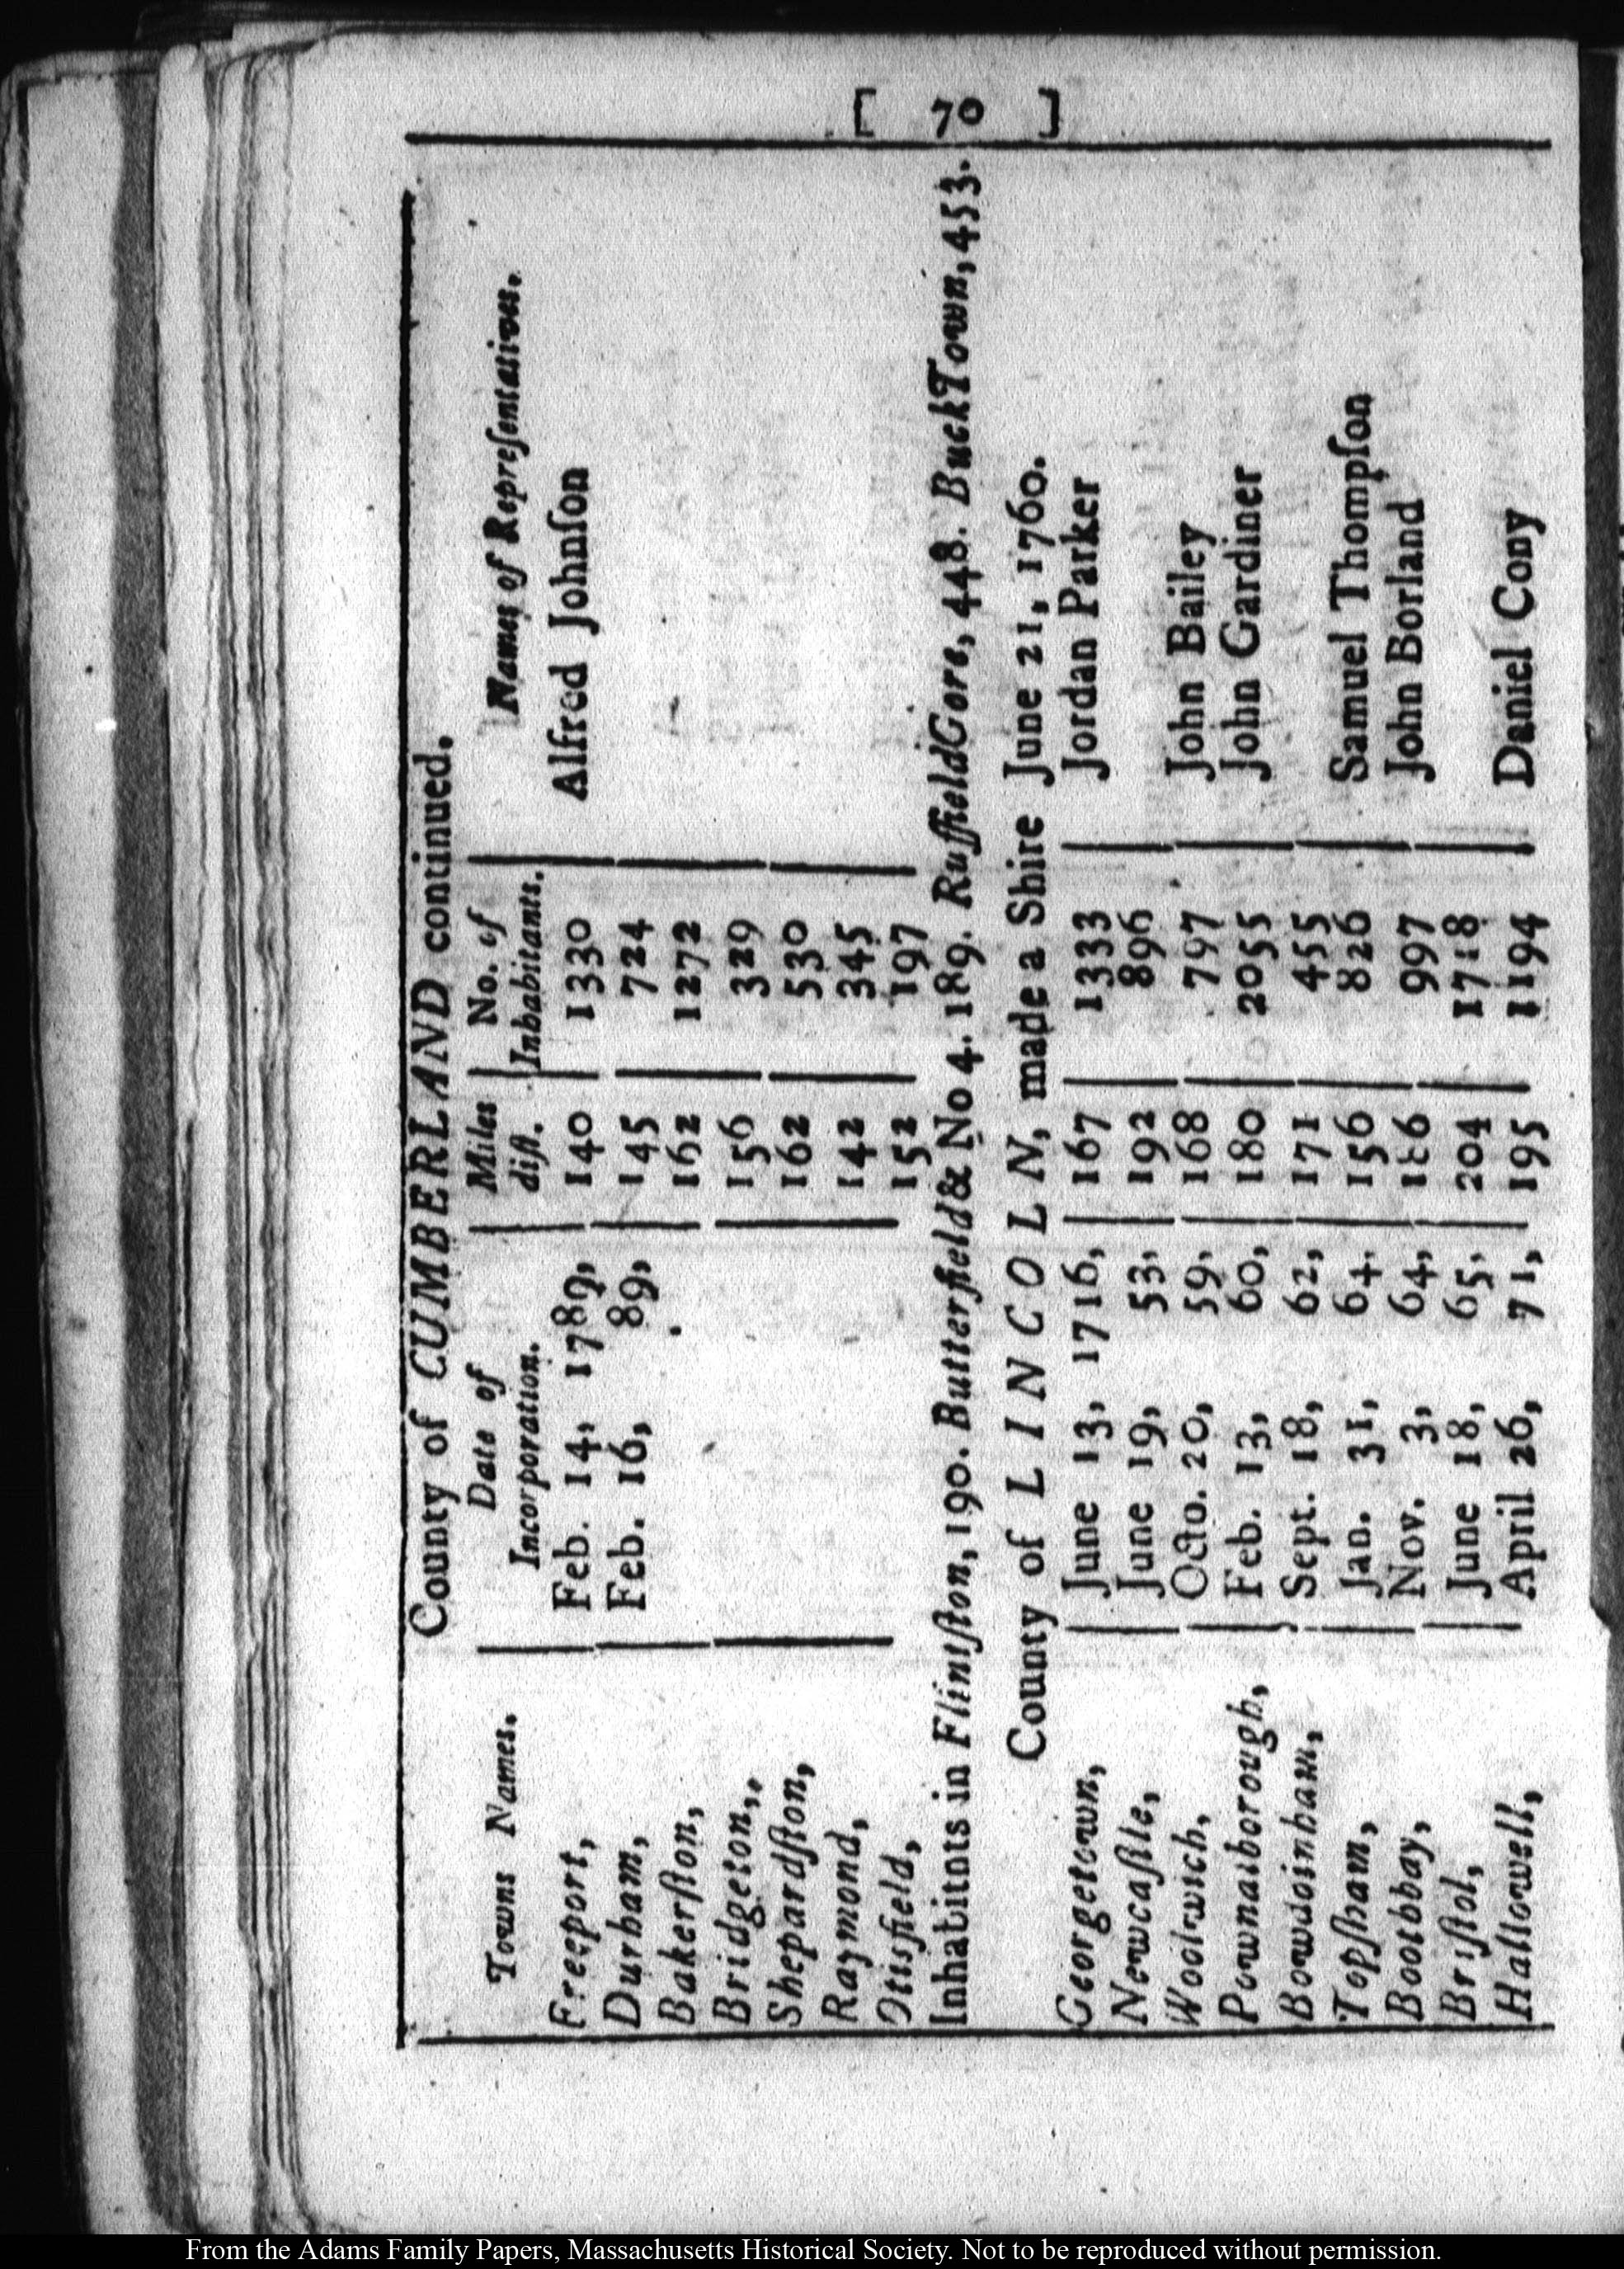 [ 70 ]
County of CUMBERLAND continued.
Towns Names. Date of Incorporation. Miles diſt. No. of Inhabitants. Names of Repreſentatives.
Freeport, Feb. 14, 1789, 140 1330 Alfred Johnſon
Durham, Feb. 16, 89, 145 724
Bakerſton, 162 1272
Bridgeton, 156 329
Shepardſton, 162 530
Raymond, 142 345
Otisfield, 152 197
Inhabitnts in Flintſton, 190. Butterfield & No 4. 189. Ruffield Gore, 448. Buck Town, 453.
County of LINCOLN, made a Shire June 21, 1760.
Georgetown, June 13, 1716, 167 1333 Jordan Parker
Newcaſtle, June 19, 53, 192 896
Woolwich, Octo. 20, 59, 168 797 John Bailey
Pownalborough, Feb. 13, 60, 180 2055 John Gardiner
Bowdoinham, Sept. 18, 62, 171 455
Topſham, Jan. 31, 64. 156 826 Samuel Thompſon
Boothbay, Nov. 3, 64, 186 997 John Borland
Briſtol, June 18, 65, 204 1718
Hallowell, April 26, 71, 195 1194 Daniel Cony
From the Adams Family Papers, Massachusetts Historical Society. Not to be reproduced without permission.